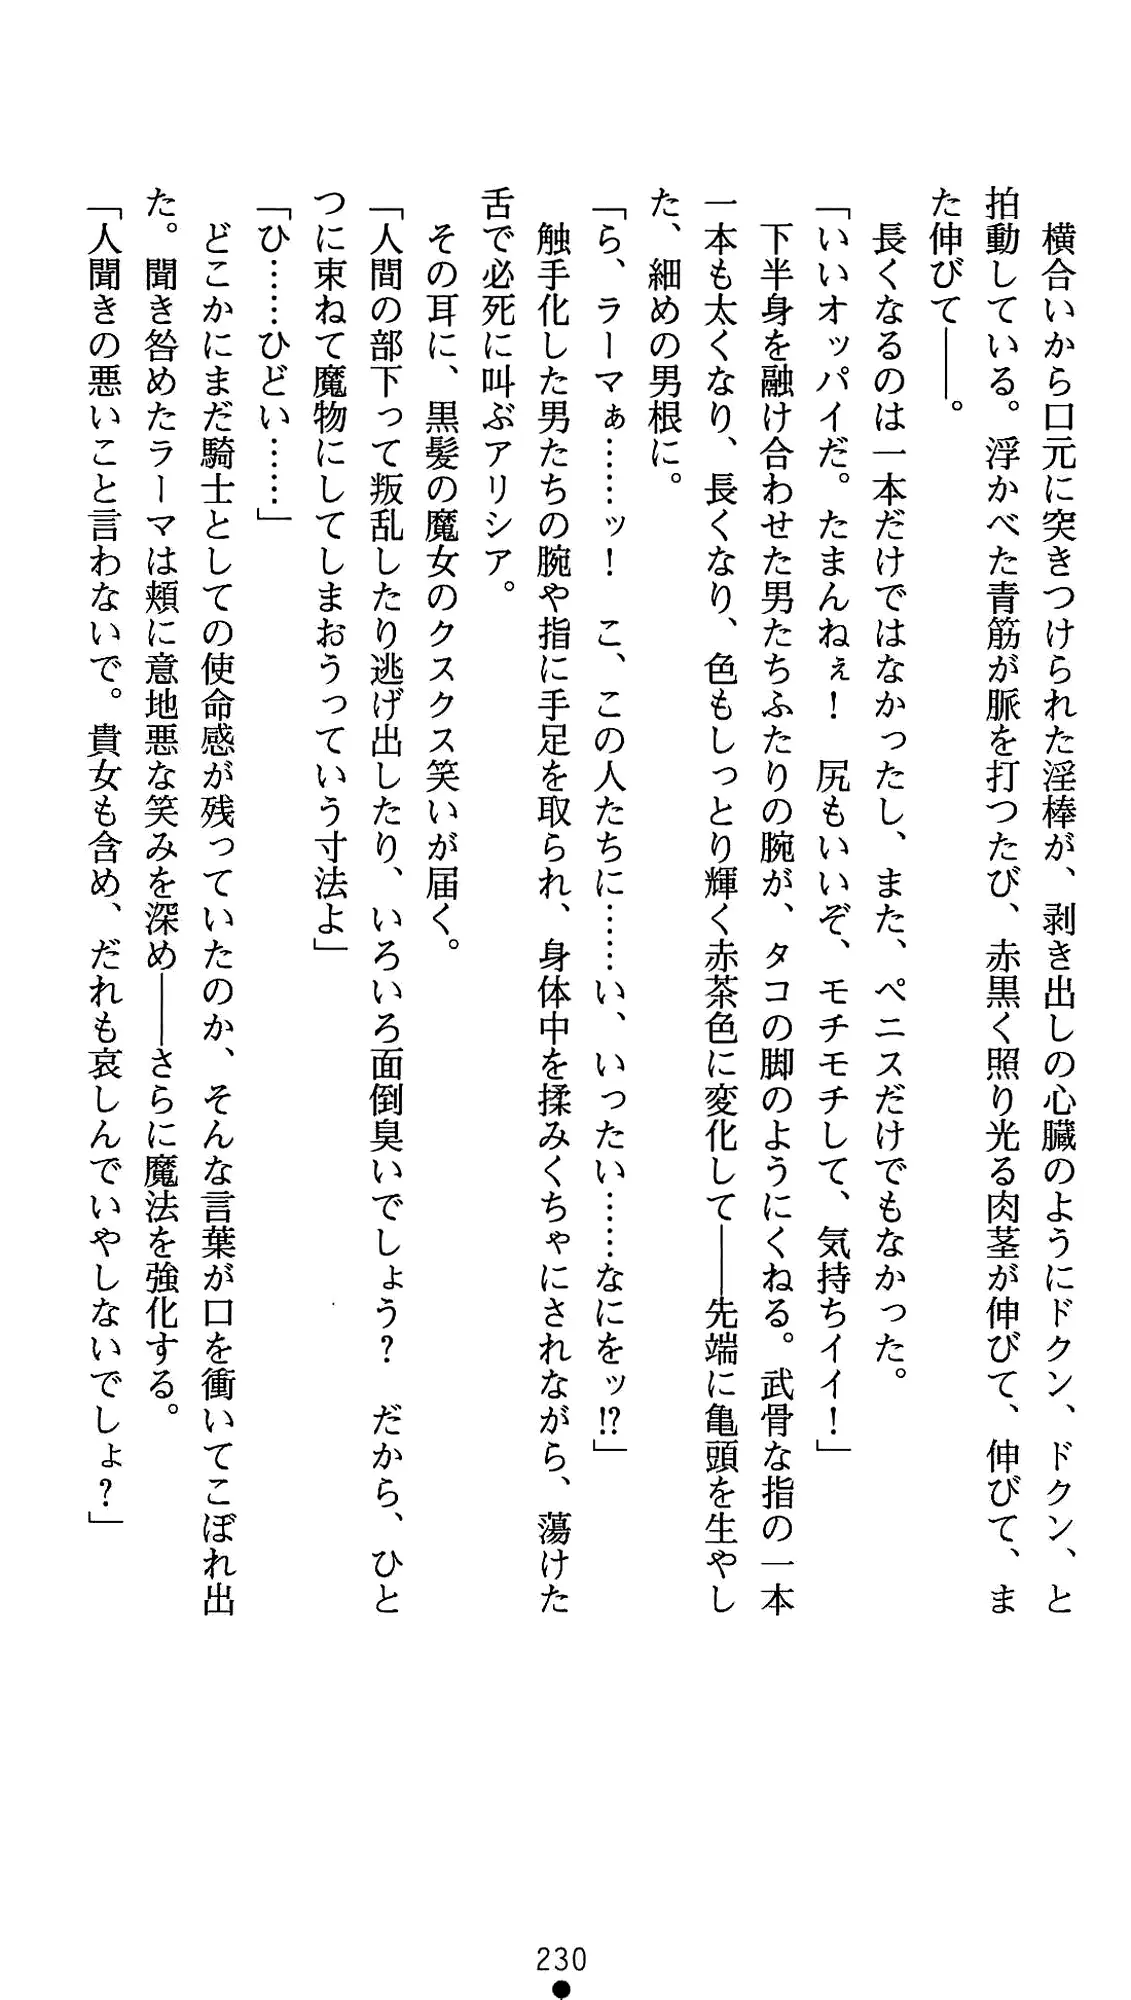 横合いから口元に突きつけられた淫棒が、剥き出しの心臓のようにドクン、ドクン、と
拍動している。浮かべた青筋が脈を打つたび、赤黒く照り光る肉茎が伸びて、伸びて、ま
た伸びて――。
　長くなるのは一本だけではなかったし、また、ペニスだけでもなかった。
「いいオッパイだ。たまんねぇ！　尻もいいぞ、モチモチして、気持ちイイ！」
　下半身を融け合わせた男たちふたりの腕が、タコの脚のようにくねる。武骨な指の一本
一本も太くなり、長くなり、色もしっとり輝く赤茶色に変化して――先端に亀頭を生やし
た、細めの男根に。
「ら、ラーマぁ……ッ！　こ、この人たちに……い、いったい……なにをッ!?」
　触手化した男たちの腕や指に手足を取られ、身体中を揉みくちゃにされながら、蕩けた
舌で必死に叫ぶアリシア。
　その耳に、黒髪の魔女のクスクス笑いが届く。
「人間の部下って叛乱したり逃げ出したり、いろいろ面倒臭いでしょう？　だから、ひと
つに束ねて魔物にしてしまおうっていう寸法よ」
「ひ……ひどい……」
　どこかにまだ騎士としての使命感が残っていたのか、そんな言葉が口を衝いてこぼれ出
た。聞き咎めたラーマは頬に意地悪な笑みを深め――さらに魔法を強化する。
「人聞きの悪いこと言わないで。貴女も含め、だれも哀しんでいやしないでしょ？」
230